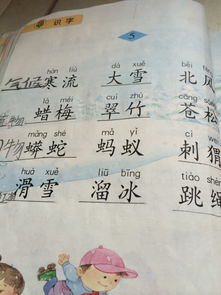 识字
5
hán liú dà xuě běi
气候 寒流 大雪 北风
là méi cuì zhú cāng sōng
物 蜡梅 翠竹 苍松
mǎng shé mǎ yǐ cì wei
物 蟒蛇 蚂蚁 刺猬
huá xuě liū bīng tiào
滑雪 溜冰 跳绳